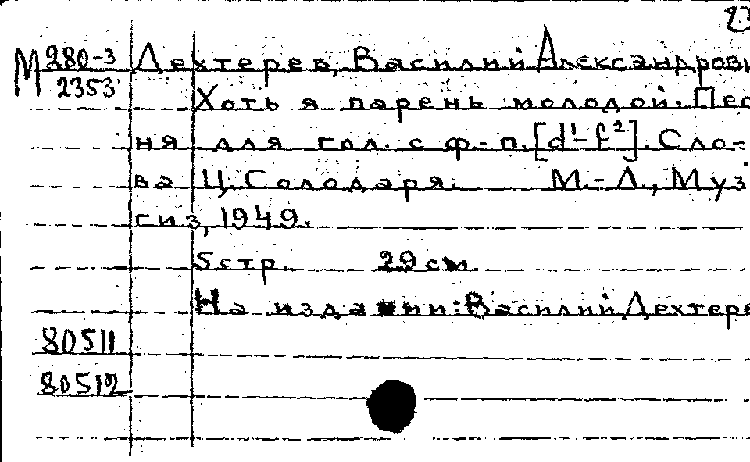 М 280-3 Дехтерев, Василий Александрови
2353 Хоть я парень молодой. Пес
ня для гол. с ф-п. [d¹-f²]. Сло-
ва Ц. Солодаря. М.-Л., Муз
гиз, 1949.
5 стр. 29 см.
На издании: Василий Дехтере
80511
80512